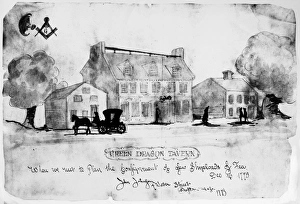 G
GREEN DRAGON TAVERN
Where we met to Plan the Consignment of few Shiploads of Tea
Dec 1773
Water Street
1773